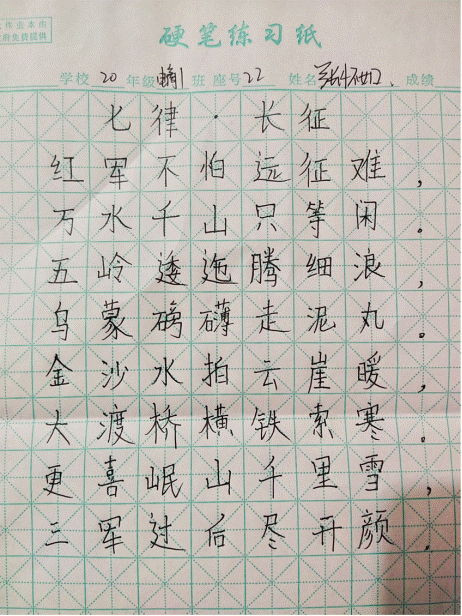 作业本由
府免费提供
硬笔练习纸
学校 20 年级 班 座号 22 姓名 成绩
七律·长征
红军不怕远征难,
万水千山只等闲。
五岭逶迤腾细浪,
乌蒙磅礴走泥丸。
金沙水拍云崖暖,
大渡桥横铁索寒。
更喜岷山千里雪,
三军过后尽开颜.